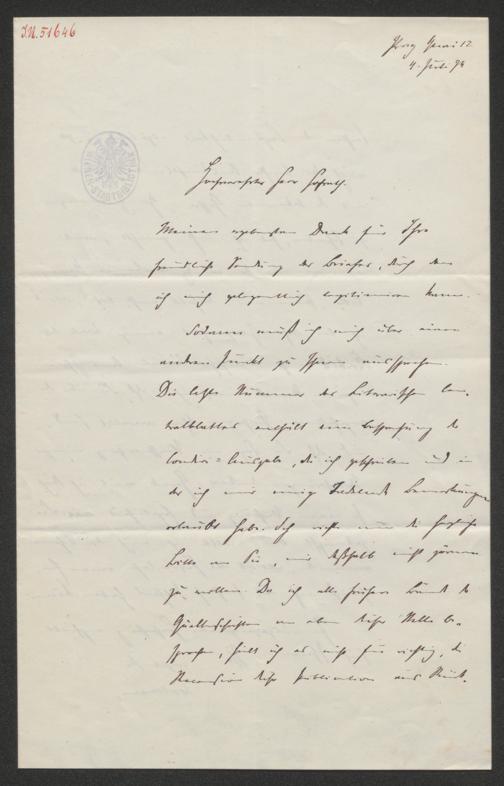 I.N. 51646
Prag
4. Juli 74
Hochverehrter Herr Hofrath.
Meinen ergebensten Dank für Ihre
freundliche Sendung des Briefes, durch den
ich mich gelegentlich legitimieren kann.
Sodann muß ich mich über einen
anderen Punkt zu Ihnen aussprechen.
Die letzte Nummer des Literarischen Cen-
tralblattes enthält eine Besprechung der
Ausgabe, die ich geschrieben und in
der ich mir einige tadelnde Bemerkungen
erlaubt habe. Ich richte nun die herzliche
Bitte an Sie, mir deßhalb nicht zürnen
zu wollen. Da ich alle früheren Bände der
Quellenschriften an eben dieser Stelle be-
sprochen, hielt ich es nicht für richtig, die
Recension dieser Publication aus Rück-